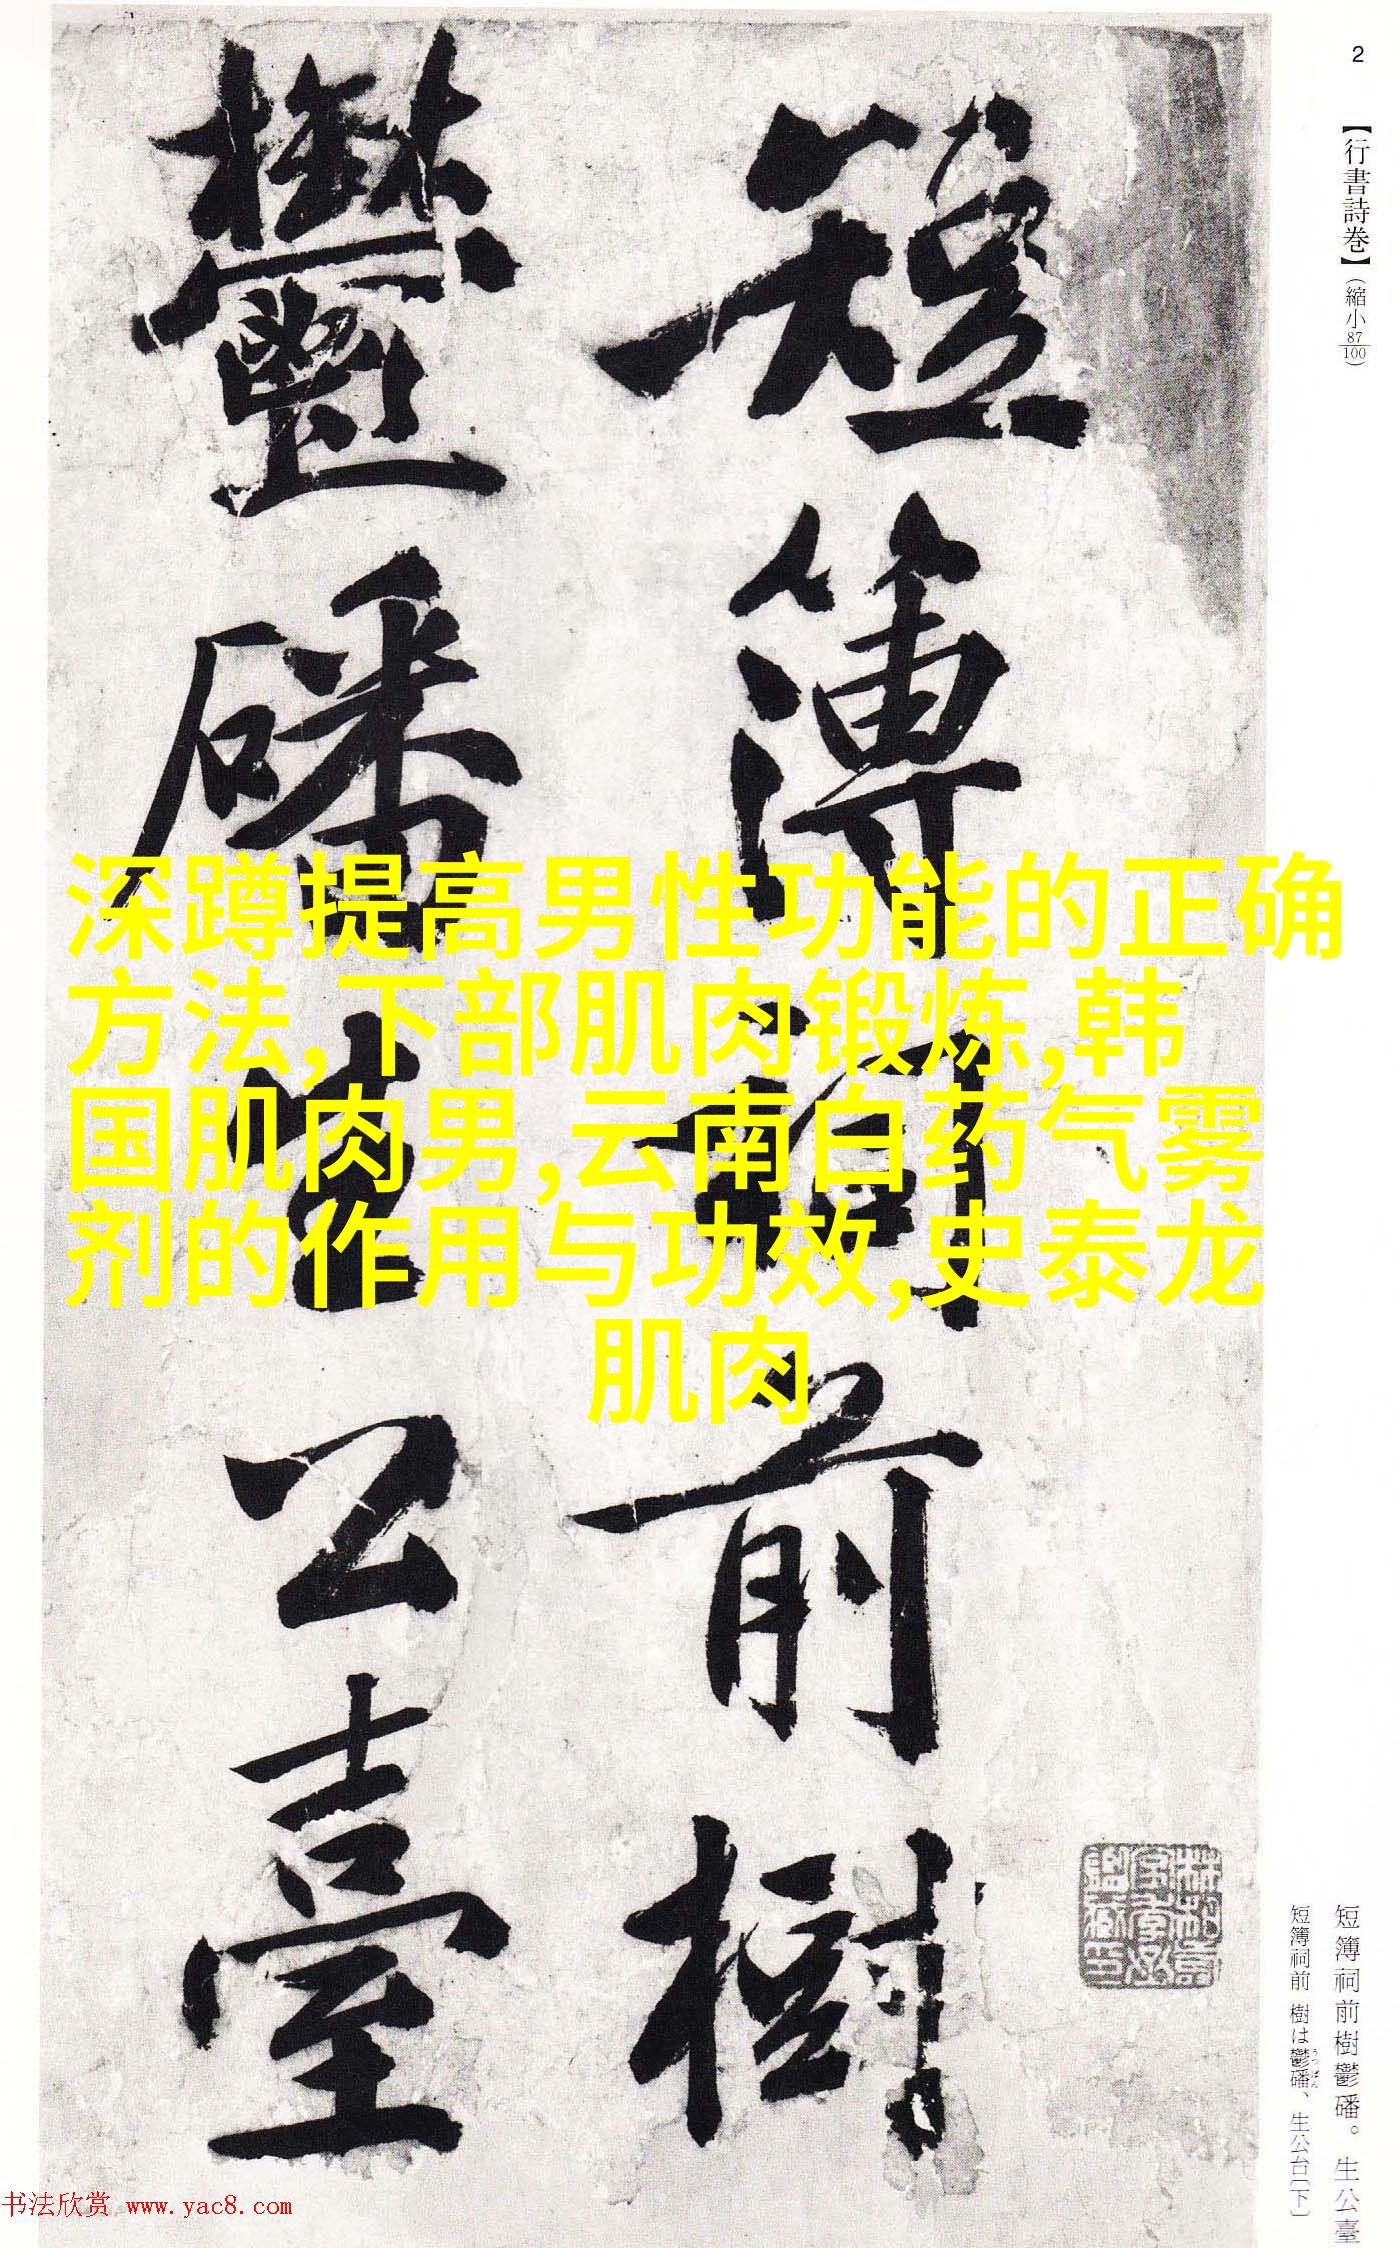 2
【行書詩巻】(縮小87/100)
短簿祠前樹
鬱磻生公臺
深蹲提高男性功能的正确
方法,下部肌肉锻炼,韩
国肌肉男,云南白药气雾
剂的作用与功效,史泰龙
肌肉
短簿祠前樹鬱磻。生公臺
短簿祠前 樹は鬱磻、生公台〔下〕
うっぱん
书法欣赏 www.yac8.com